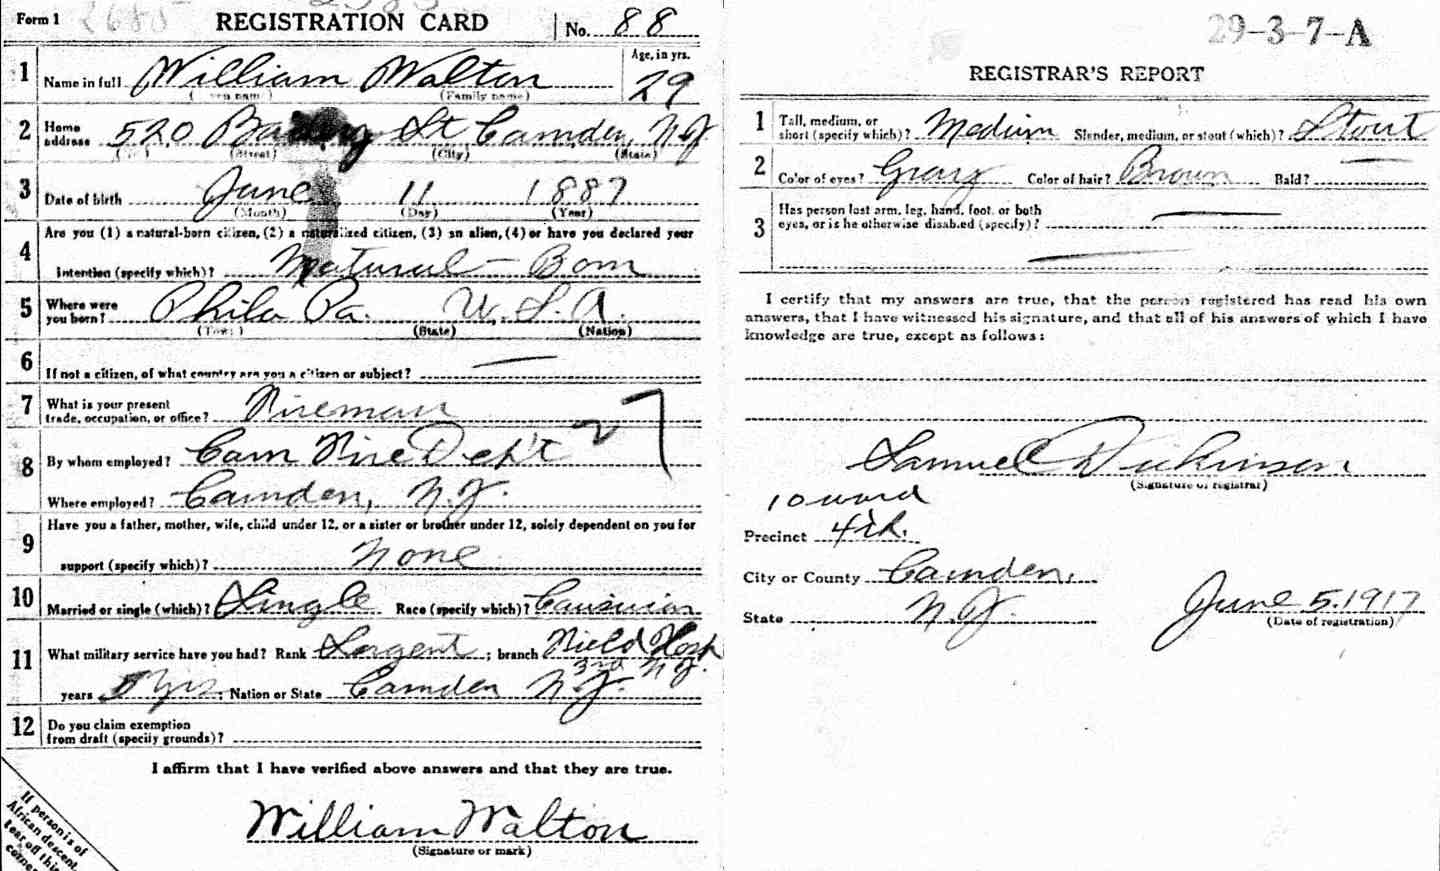 Form 1 REGISTRATION CARD No. 88
1 Name in full William Walton Age, in yrs. 29
(Family name)
2 Home address 520 St Camden, N.J.
(Street) (City) (State)
3 Date of birth June 11 1887
(Month) (Day) (Year)
4 Are you (1) a natural-born citizen, (2) a naturalized citizen, (3) an alien, (4) or have you declared your
intention (specify which)? Natural-Born
5 Where were you born? Phila Pa. U.S.A.
(Town) (State) (Nation)
6 If not a citizen, of what country are you a citizen or subject?
7 What is your present trade, occupation, or office? Fireman
8 By whom employed? Cam Fire Dept
Where employed? Camden, N.J.
9 Have you a father, mother, wife, child under 12, or a sister or brother under 12, solely dependent on you for
support (specify which)? None
10 Married or single (which)? Single Race (specify which)? Causician
11 What military service have you had? Rank Sargent ; branch Field Hosp
3rd N.J.
years 5 yrs ; Nation or State Camden N.J.
12 Do you claim exemption
from draft (specify grounds)?
I affirm that I have verified above answers and that they are true.
William Walton
(Signature or mark)
If person is of
African descent,
tear off this
corner
29-3-7-A
REGISTRAR'S REPORT
1 Tall, medium, or short (specify which)? Medium Slender, medium, or stout (which)? Stout
2 Color of eyes? Gray Color of hair? Brown Bald?
3 Has person lost arm, leg, hand, foot, or both
eyes, or is he otherwise disabled (specify)?
I certify that my answers are true, that the person registered has read his own
answers, that I have witnessed his signature, and that all of his answers of which I have
knowledge are true, except as follows:
Samuel Dickinson
(Signature of registrar)
10 ward
Precinct 4th.
City or County Camden,
State N.J.
June 5, 1917
(Date of registration)